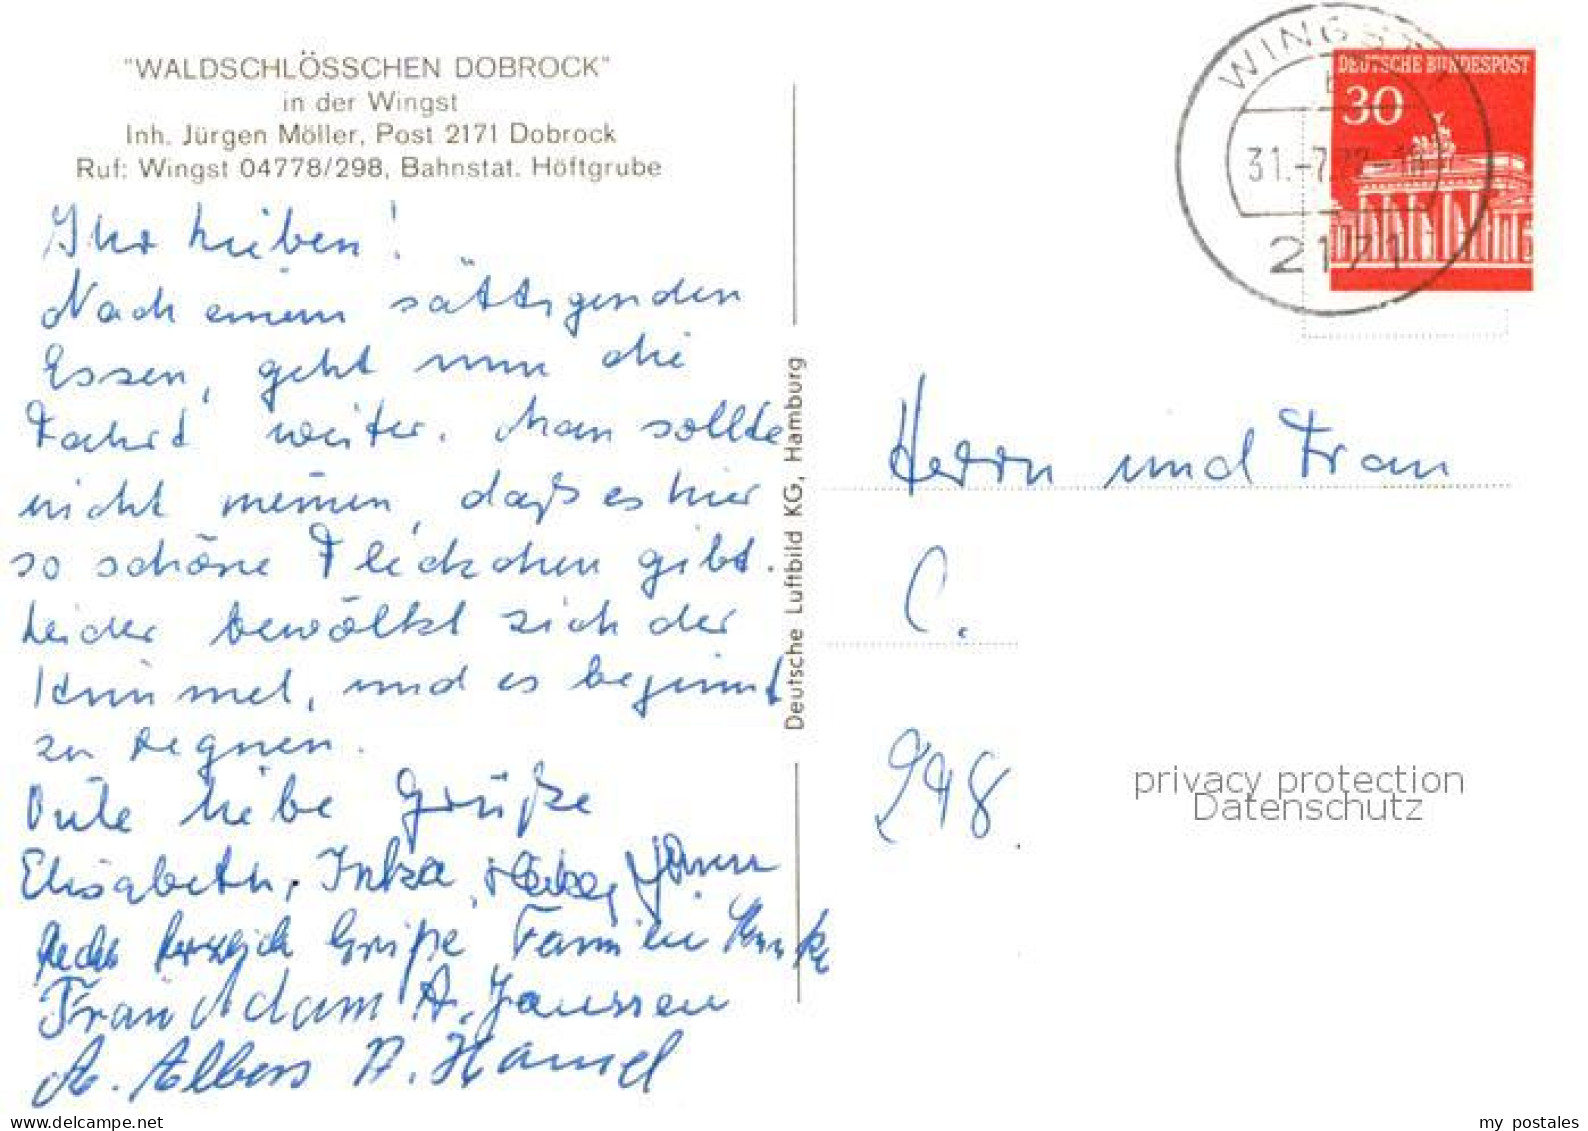 "WALDSCHLÖSSCHEN DOBROCK"
in der Wingst
Inh. Jürgen Möller, Post 2171 Dobrock
Ruf: Wingst 04778/298, Bahnstat. Höftgrube
Ihr Lieben!
Nach einem sättigenden
Essen, geht nun die
Fahrt weiter. Man sollte
nicht meinen, daß es hier
so schöne Fleckchen gibt.
Leider bewölkt sich der
Himmel, und es beginnt
zu regnen.
Viele liebe Grüße
Elisabeth, Inka,
Recht herzlich Grüße Familie
Frau Adam A. Janssen
A. Albers
Deutsche Luftbild KG, Hamburg
WINGST 1
b
31.-7.72-18
2171
DEUTSCHE BUNDESPOST
30
Herrn und Frau
C.
298.
privacy protection
Datenschutz
delcampe.net
my_postales